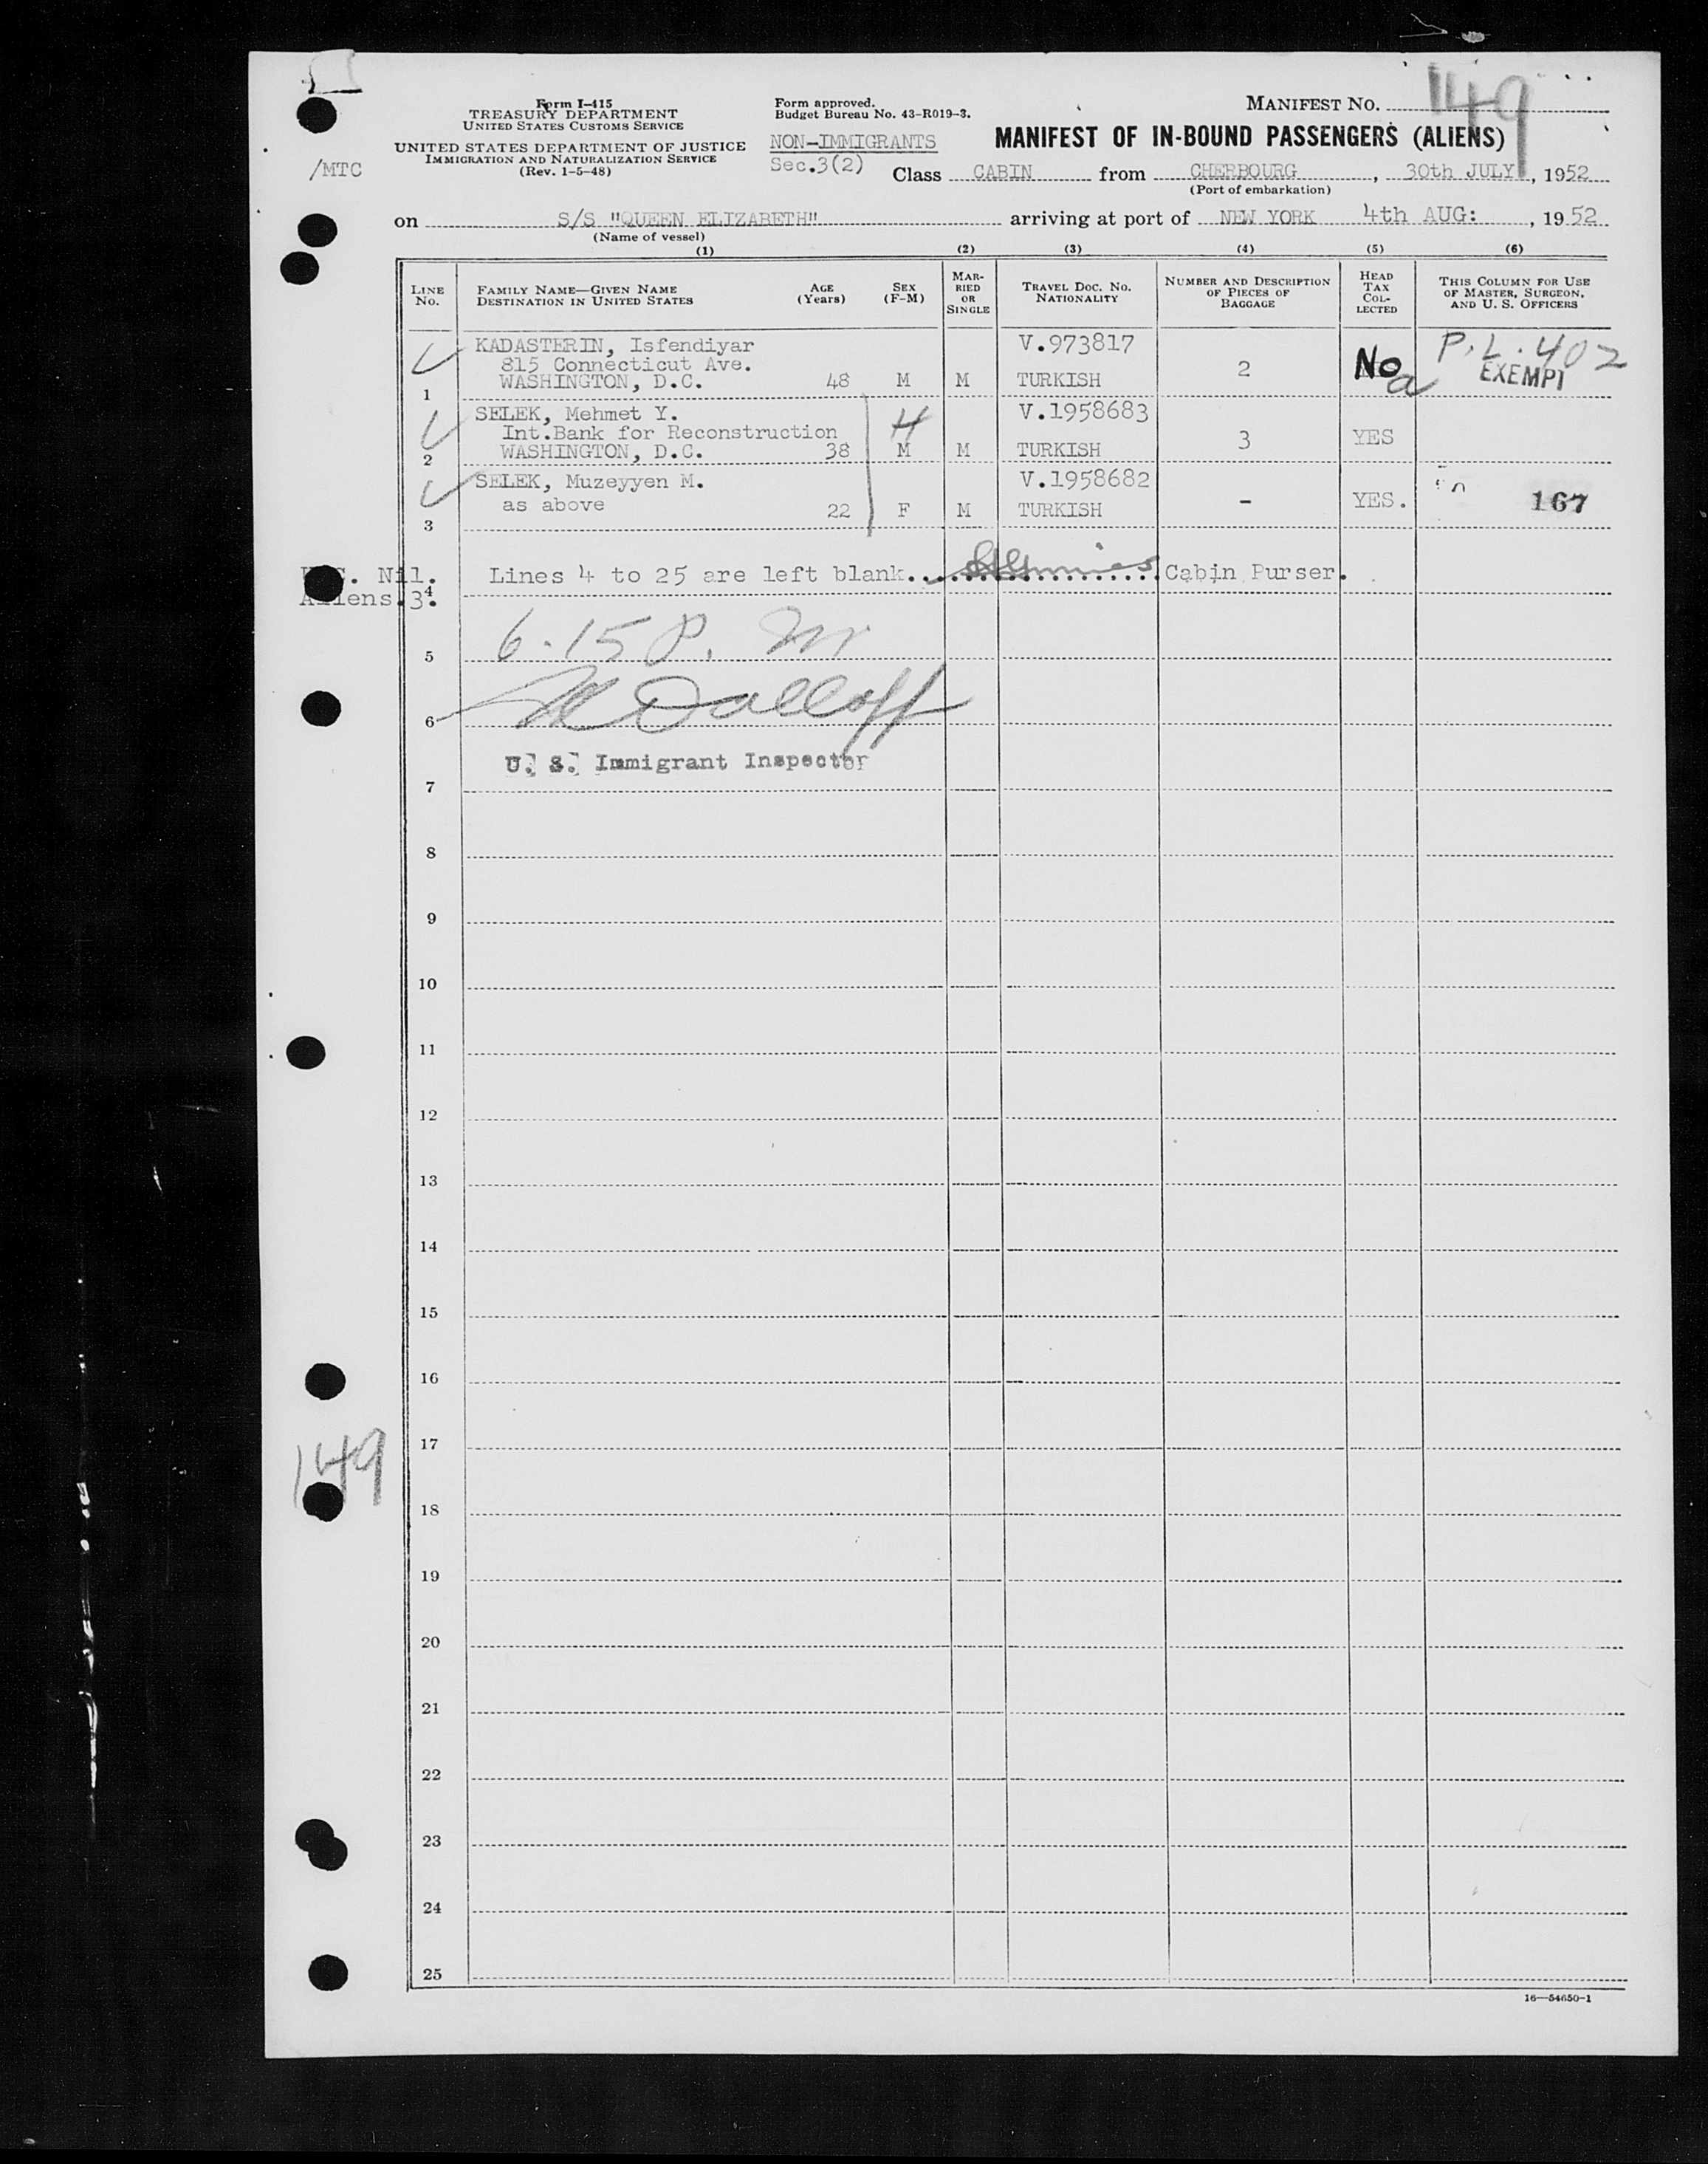 Form I-415
TREASURY DEPARTMENT
UNITED STATES CUSTOMS SERVICE
UNITED STATES DEPARTMENT OF JUSTICE
IMMIGRATION AND NATURALIZATION SERVICE
(Rev. 1-5-48)
/MTC
Form approved.
Budget Bureau No. 43-R019-3.
NON-IMMIGRANTS
Sec.3(2)
MANIFEST NO. 149
MANIFEST OF IN-BOUND PASSENGERS (ALIENS)
Class CABIN from CHERBOURG, 30th JULY, 1952
(Port of embarkation)
on S/S "QUEEN ELIZABETH" arriving at port of NEW YORK 4th AUG:, 1952
(Name of vessel)
(1) (2) (3) (4) (5) (6)
LINE NO. FAMILY NAME—GIVEN NAME DESTINATION IN UNITED STATES AGE (Years) SEX (F-M) MARRIED OR SINGLE TRAVEL DOC. NO. NATIONALITY NUMBER AND DESCRIPTION OF PIECES OF BAGGAGE HEAD TAX COLLECTED THIS COLUMN FOR USE OF MASTER, SURGEON, AND U. S. OFFICERS
KADASTERIN, Isfendiyar V.973817 P.L. 402
815 Connecticut Ave. 2 No EXEMPT
1 WASHINGTON, D.C. 48 M M TURKISH
SELEK, Mehmet Y. H V.1958683
Int.Bank for Reconstruction 3 YES
2 WASHINGTON, D.C. 38 M M TURKISH
SELEK, Muzeyyen M. V.1958682
as above 22 F M TURKISH - YES. 167
3
Nil. Lines 4 to 25 are left blank. Cabin Purser.
Aliens.3.
4
6.15 P. M
5
6
U. S. Immigrant Inspector
7
8
9
10
11
12
13
14
15
16
17
149
18
19
20
21
22
23
24
25
16—54650-1